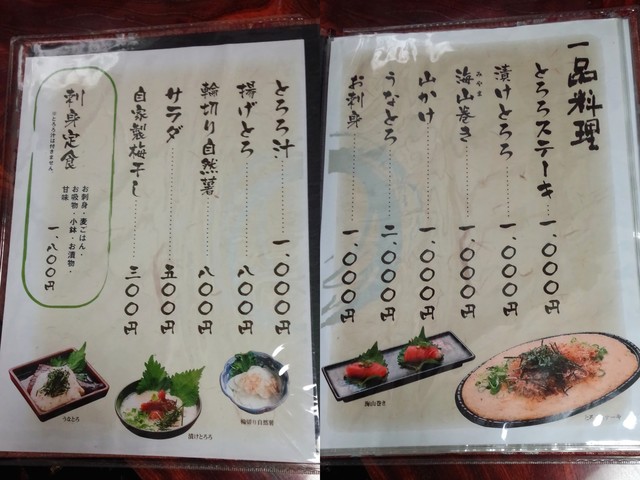 一品料理
とろろステーキ 一、〇〇〇円
漬けとろろ 一、〇〇〇円
海山巻き 一、〇〇〇円
みやま
山かけ 一、〇〇〇円
うなとろ 二、〇〇〇円
お刺身 一、〇〇〇円
海山巻き
とろろ汁 一、〇〇〇円
揚げとろ 八〇〇円
輪切り自然薯 八〇〇円
サラダ 五〇〇円
自家製梅干し 三〇〇円
刺身定食
※とろろ汁は付きません
お刺身・麦ごはん
お吸物・小鉢・お漬物・
甘味
一、八〇〇円
うなとろ
漬けとろろ
輪切り自然薯